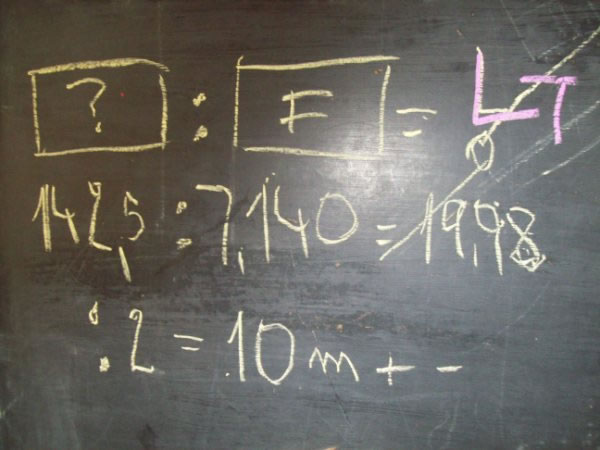 ? : F = LT
142,5 : 7,140 = 19,98
: 2 = 10 m + -